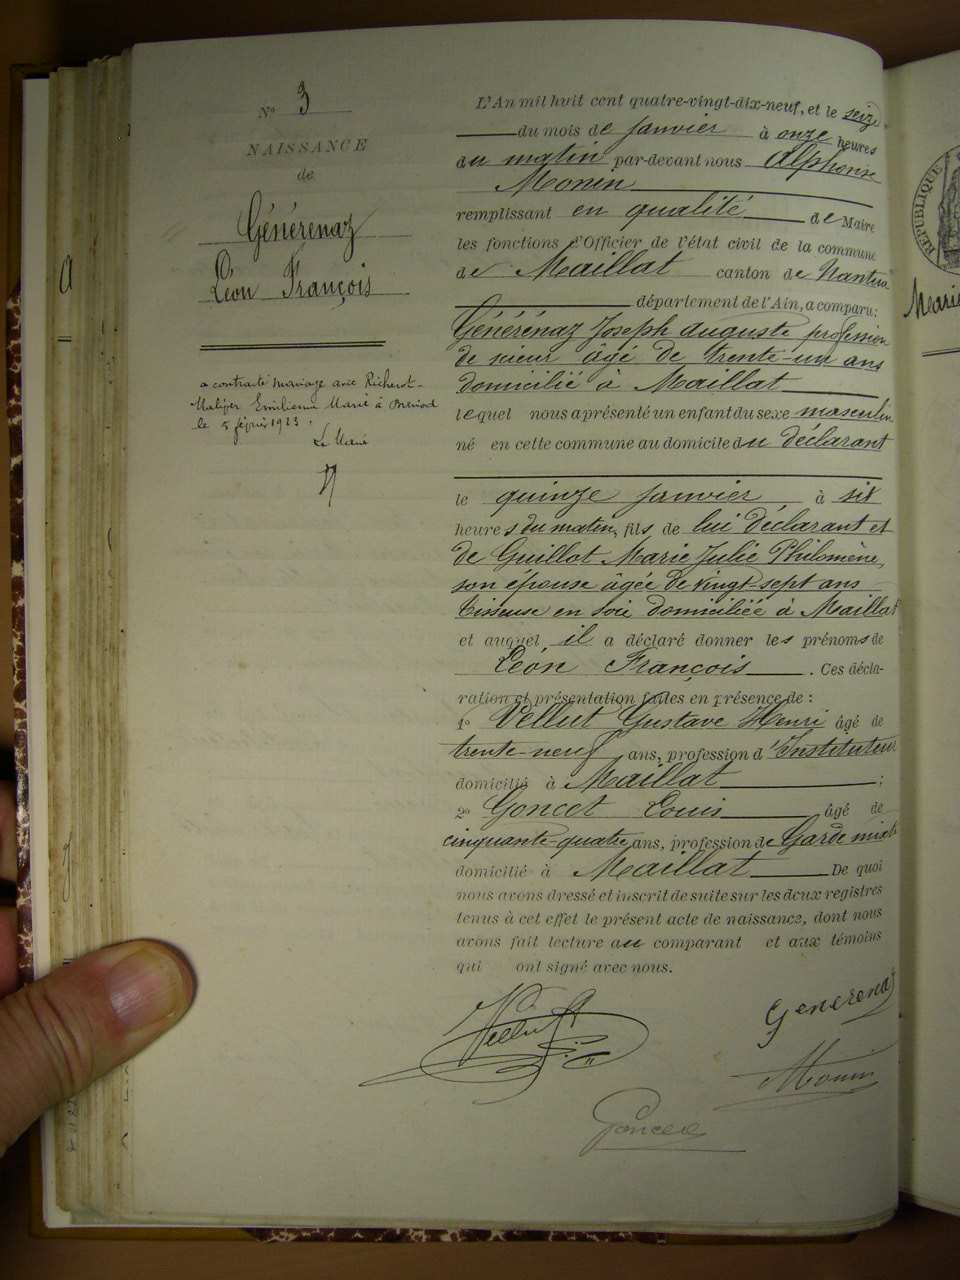 N° 3
NAISSANCE
de
Générenaz
Léon François
a contracté mariage avec Richerot-
Emilienne Marie à Brénod
le 5 février 1923.
Le Maire
L'An mil huit cent quatre-vingt-dix-neuf, et le seize
du mois de janvier à onze heures
du matin par-devant nous Alphonse
Monin
remplissant en qualité de Maire
les fonctions d'Officier de l'état civil de la commune
de Maillat canton de Nantua
département de l'Ain, a comparu:
Générénaz Joseph auguste profession
de scieur âgé de trente-un ans
domicilié à Maillat
lequel nous a présenté un enfant du sexe masculin
né en cette commune au domicile du déclarant
le quinze janvier à six
heures du matin, fils de lui déclarant et
de Guillot Marie Julie Philomène,
son épouse âgée de vingt-sept ans
tisseuse en soie domiciliée à Maillat
et auquel il a déclaré donner les prénoms de
Léon François. Ces décla-
ration et présentation faites en présence de :
1° Vellut Gustave Henri âgé de
trente-neuf ans, profession d'Instituteur
domicilié à Maillat ;
2° Goncet Louis âgé de
cinquante-quatre ans, profession de Garde
domicilié à Maillat De quoi
nous avons dressé et inscrit de suite sur les deux registres
tenus à cet effet le présent acte de naissance, dont nous
avons fait lecture au comparant et aux témoins
qui ont signé avec nous.
Vellut
Generenaz
Monin
Goncet
RÉPUBLIQUE
Marie